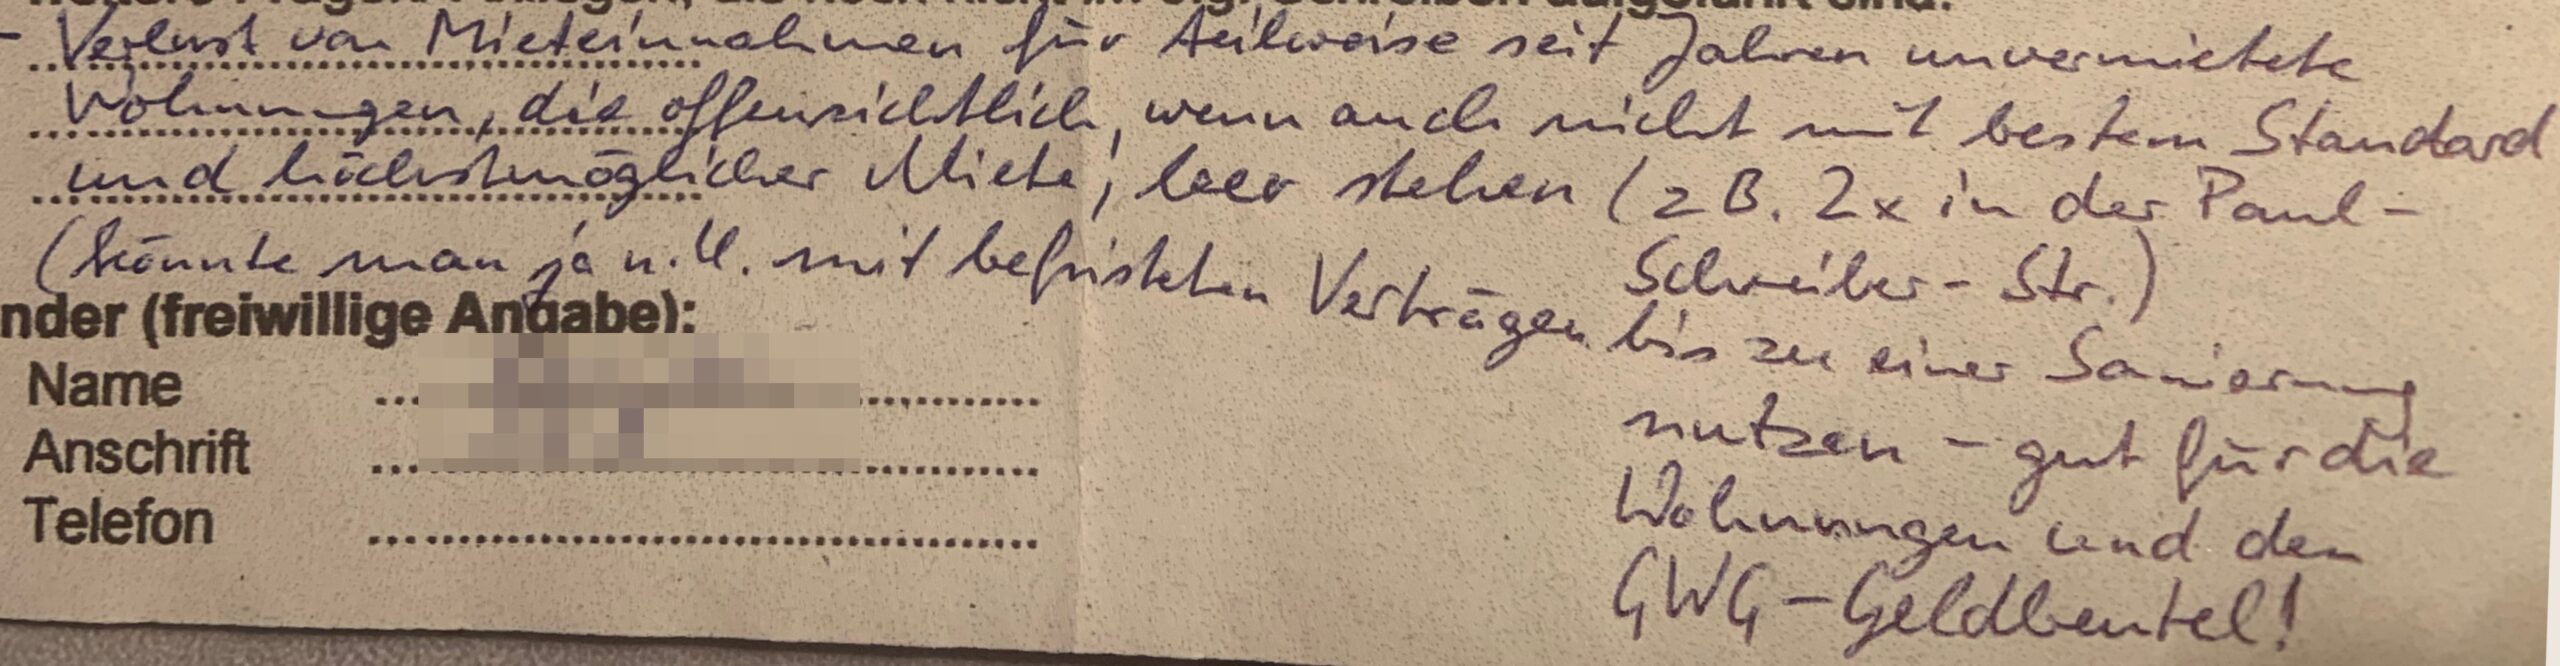 weitere Fragen/Anliegen, die noch nicht im o.g. Schreiben aufgeführt sind:
- Verlust von Mieteinnahmen für teilweise seit Jahren unvermietete
Wohnungen, die offensichtlich, wenn auch nicht mit bestem Standard
und höchstmöglicher Miete, leer stehen (z B. 2x in der Paul-
Schreiber-Str.)
(könnte man ja u.U. mit befristeten Verträgen bis zu einer Sanierung
nutzen - gut für die
Wohnungen und den
GWG-Geldbeutel!
nder (freiwillige Angabe):
Name
Anschrift
Telefon